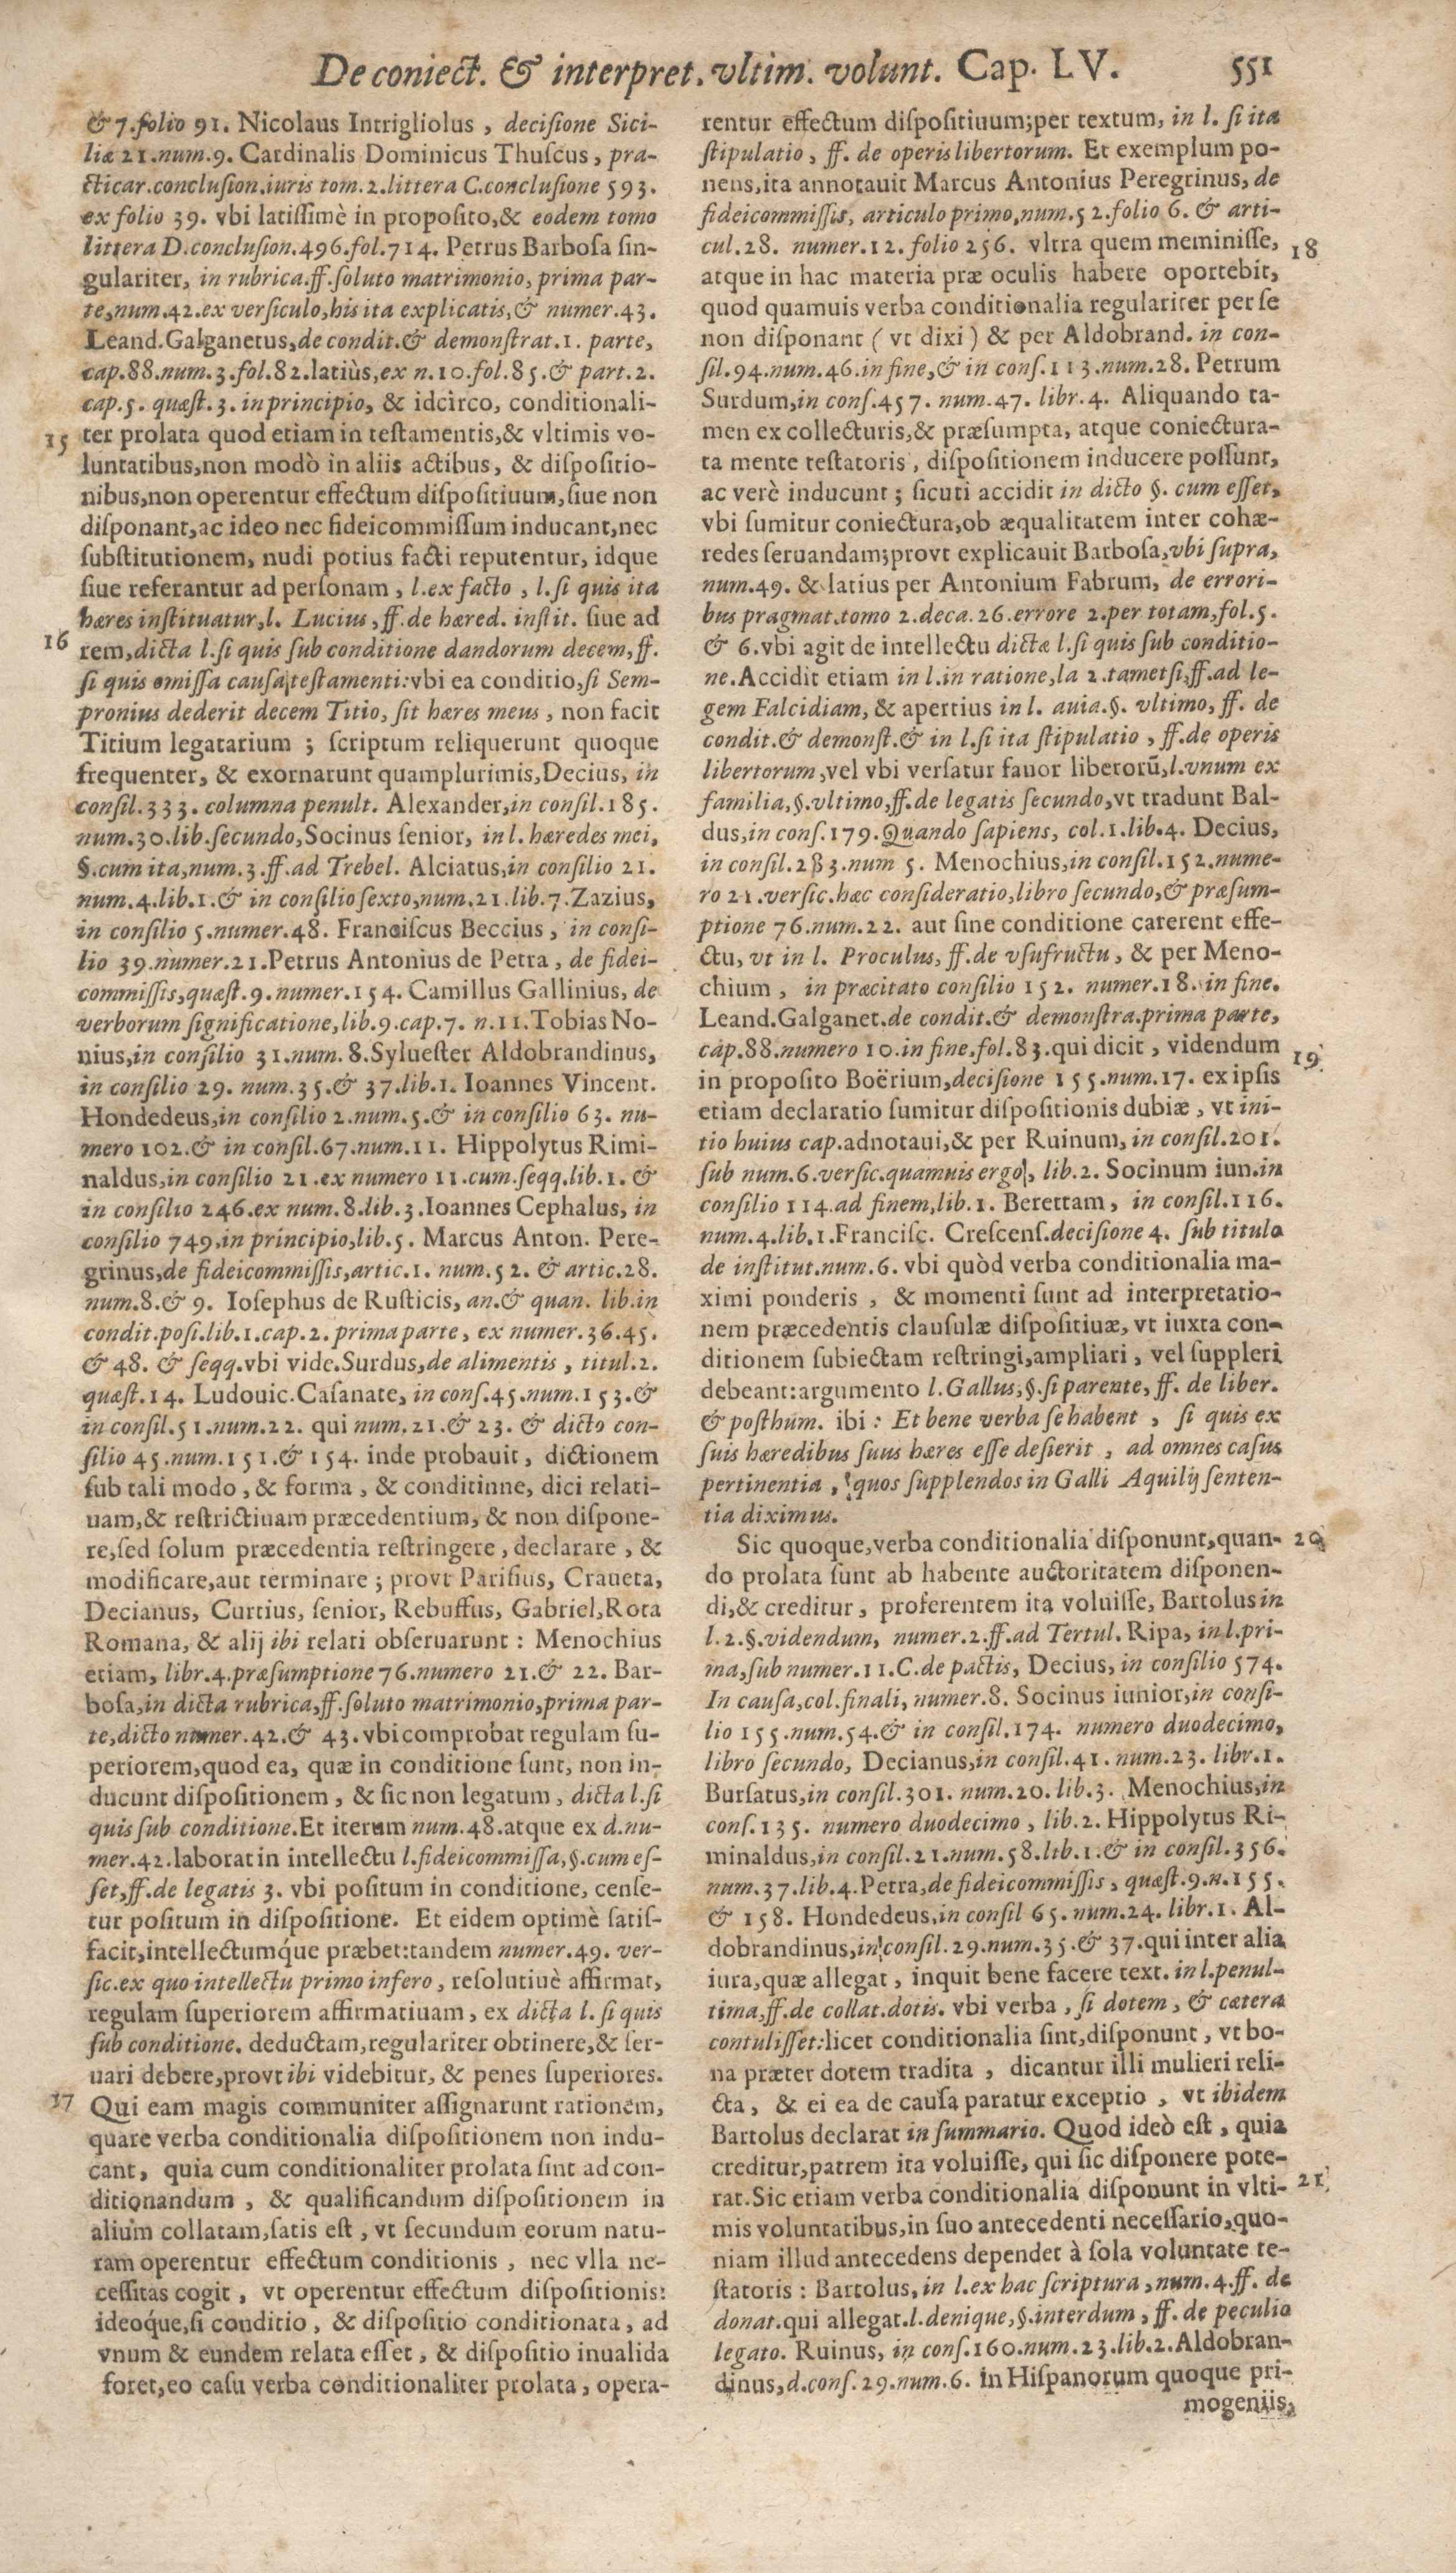 De coniect. & interpret. vltim. volunt. Cap. LV. 551
& 7. folio 91. Nicolaus Intrigliolus, decisione Sici-
liæ 21. num. 9. Cardinalis Dominicus Thuscus, pra-
cticar. conclusion. iuris tom. 2. littera C. conclusione 593.
ex folio 39. vbi latissimè in proposito, & eodem tomo
littera D. conclusion. 496. fol. 714. Petrus Barbosa sin-
gulariter, in rubrica. ff. soluto matrimonio, prima par-
te, num. 42. ex versiculo, his ita explicatis, & numer. 43.
Leand. Galganetus, de condit. & demonstrat. 1. parte,
cap. 88. num. 3. fol. 82. latiùs, ex n. 10. fol. 85. & part. 2.
cap. 5. quæst. 3. in principio, & idcirco, conditionali-
15 ter prolata quod etiam in testamentis, & vltimis vo-
luntatibus, non modò in aliis actibus, & dispositio-
nibus, non operentur effectum dispositiuum, siue non
disponant, ac ideo nec fideicommissum inducant, nec
substitutionem, nudi potius facti reputentur, idque
siue referantur ad personam, l. ex facto, l. si quis ita
hæres instituatur, l. Lucius, ff. de hæred. instit. siue ad
16 rem, dicta l. si quis sub conditione dandorum decem, ff.
si quis omissa causa testamenti: vbi ea conditio, si Sem-
pronius dederit decem Titio, sit hæres meus, non facit
Titium legatarium; scriptum reliquerunt quoque
frequenter, & exornarunt quamplurimis, Decius, in
consil. 333. columna penult. Alexander, in consil. 185.
num. 30. lib. secundo, Socinus senior, in l. hæredes mei,
§. cum ita, num. 3. ff. ad Trebel. Alciatus, in consilio 21.
num. 4. lib. 1. & in consilio sexto, num. 21. lib. 7. Zazius,
in consilio 5. numer. 48. Franciscus Beccius, in consi-
lio 39. numer. 21. Petrus Antonius de Petra, de fidei-
commissis, quæst. 9. numer. 154. Camillus Gallinius, de
verborum significatione, lib. 9. cap. 7. n. 11. Tobias No-
nius, in consilio 31. num. 8. Syluester Aldobrandinus,
in consilio 29. num. 35. & 37. lib. 1. Ioannes Vincent.
Hondedeus, in consilio 2. num. 5. & in consilio 63. nu-
mero 102. & in consil. 67. num. 11. Hippolytus Rimi-
naldus, in consilio 21. ex numero 11. cum. seqq. lib. 1. &
in consilio 246. ex num. 8. lib. 3. Ioannes Cephalus, in
consilio 749. in principio, lib. 5. Marcus Anton. Pere-
grinus, de fideicommissis, artic. 1. num. 52. & artic. 28.
num. 8. & 9. Iosephus de Rusticis, an. & quan. lib. in
condit. posi. lib. 1. cap. 2. prima parte, ex numer. 36. 45.
& 48. & seqq. vbi vide. Surdus, de alimentis, titul. 2.
quæst. 14. Ludouic. Casanate, in cons. 45. num. 153. &
in consil. 51. num. 22. qui num. 21. & 23. & dicto con-
silio 45. num. 151. & 154. inde probauit, dictionem
sub tali modo, & forma, & conditinne, dici relati-
uam, & restrictiuam præcedentium, & non dispone-
re, sed solum præcedentia restringere, declarare, &
modificare, aut terminare; provt Parisius, Craueta,
Decianus, Curtius, senior, Rebuffus, Gabriel, Rota
Romana, & alij ibi relati obseruarunt: Menochius
etiam, libr. 4. præsumptione 76. numero 21. & 22. Bar-
bosa, in dicta rubrica, ff. soluto matrimonio, prima par-
te, dicto numer. 42. & 43. vbi comprobat regulam su-
periorem, quod ea, quæ in conditione sunt, non in-
ducunt dispositionem, & sic non legatum, dicta l. si
quis sub conditione. Et iterum num. 48. atque ex d. nu-
mer. 42. laborat in intellectu l. fideicommissa, §. cum es-
set, ff. de legatis 3. vbi positum in conditione, cense-
tur positum in dispositione. Et eidem optimè satis-
facit, intellectumque præbet: tandem numer. 49. ver-
sic. ex quo intellectu primo infero, resolutiuè affirmat,
regulam superiorem affirmatiuam, ex dicta l. si quis
sub conditione. deductam, regulariter obtinere, & ser-
uari debere, provt ibi videbitur, & penes superiores.
17 Qui eam magis communiter assignarunt rationem,
quare verba conditionalia dispositionem non indu-
cant, quia cum conditionaliter prolata sint ad con-
ditionandum, & qualificandum dispositionem in
alium collatam, satis est, vt secundum eorum natu-
ram operentur effectum conditionis, nec vlla ne-
cessitas cogit, vt operentur effectum dispositionis:
ideoque, si conditio, & dispositio conditionata, ad
vnum & eundem relata esset, & dispositio inualida
foret, eo casu verba conditionaliter prolata, opera-
rentur effectum dispositiuum; per textum, in l. si ita
stipulatio, ff. de operis libertorum. Et exemplum po-
nens, ita annotauit Marcus Antonius Peregrinus, de
fideicommissis, articulo primo, num. 52. folio 6. & arti-
cul. 28. numer. 12. folio 256. vltra quem meminisse, 18
atque in hac materia præ oculis habere oportebit,
quod quamuis verba conditionalia regulariter per se
non disponant (vt dixi) & per Aldobrand. in con-
sil. 94. num. 46. in fine, & in cons. 113. num. 28. Petrum
Surdum, in cons. 457. num. 47. libr. 4. Aliquando ta-
men ex collecturis, & præsumpta, atque coniectura-
ta mente testatoris, dispositionem inducere possunt,
ac verè inducunt; sicuti accidit in dicto §. cum esset,
vbi sumitur coniectura, ob æqualitatem inter cohæ-
redes seruandam; provt explicauit Barbosa, vbi supra,
num. 49. & latius per Antonium Fabrum, de errori-
bus pragmat. tomo 2. deca. 26. errore 2. per totam, fol. 5.
& 6. vbi agit de intellectu dictæ l. si quis sub conditio-
ne. Accidit etiam in l. in ratione, la 2. tametsi, ff. ad le-
gem Falcidiam, & apertius in l. auia. §. vltimo, ff. de
condit. & demonst. & in l. si ita stipulatio, ff. de operis
libertorum, vel vbi versatur fauor liberorū, l. vnum ex
familia, §. vltimo, ff. de legatis secundo, vt tradunt Bal-
dus, in cons. 179. Quando sapiens, col. 1. lib. 4. Decius,
in consil. 283. num 5. Menochius, in consil. 152. nume-
ro 21. versic. hæc consideratio, libro secundo, & præsum-
ptione 76. num. 22. aut sine conditione carerent effe-
ctu, vt in l. Proculus, ff. de vsufructu, & per Meno-
chium, in præcitato consilio 152. numer. 18. in fine.
Leand. Galganet. de condit. & demonstra. prima parte,
cap. 88. numero 10. in fine. fol. 83. qui dicit, videndum 19
in proposito Boërium, decisione 155. num. 17. ex ipsis
etiam declaratio sumitur dispositionis dubiæ, vt ini-
tio huius cap. adnotaui, & per Ruinum, in consil. 201.
sub num. 6. versic. quamuis ergo, lib. 2. Socinum iun. in
consilio 114. ad finem, lib. 1. Berettam, in consil. 116.
num. 4. lib. 1. Francisc. Crescens. decisione 4. sub titulo
de institut. num. 6. vbi quòd verba conditionalia ma-
ximi ponderis, & momenti sunt ad interpretatio-
nem præcedentis clausulæ dispositiuæ, vt iuxta con-
ditionem subiectam restringi, ampliari, vel suppleri
debeant: argumento l. Gallus, §. si parente, ff. de liber.
& posthum. ibi: Et bene verba se habent, si quis ex
suis hæredibus suus hæres esse desierit, ad omnes casus
pertinentia, quos supplendos in Galli Aquilij senten-
tia diximus.
Sic quoque, verba conditionalia disponunt, quan- 20
do prolata sunt ab habente auctoritatem disponen-
di, & creditur, proferentem ita voluisse, Bartolus in
l. 2. §. videndum, numer. 2. ff. ad Tertul. Ripa, in l. pri-
ma, sub numer. 11. C. de pactis, Decius, in consilio 574.
In causa, col. finali, numer. 8. Socinus iunior, in consi-
lio 155. num. 54. & in consil. 174. numero duodecimo,
libro secundo, Decianus, in consil. 41. num. 23. libr. 1.
Bursatus, in consil. 301. num. 20. lib. 3. Menochius, in
cons. 135. numero duodecimo, lib. 2. Hippolytus Ri-
minaldus, in consil. 21. num. 58. lib. 1. & in consil. 356.
num. 37. lib. 4. Petra, de fideicommissis, quæst. 9. n. 155.
& 158. Hondedeus, in consil 65. num. 24. libr. 1. Al-
dobrandinus, in consil. 29. num. 35. & 37. qui inter alia
iura, quæ allegat, inquit bene facere text. in l. penul-
tima, ff. de collat. dotis. vbi verba, si dotem, & cætera
contulisset: licet conditionalia sint, disponunt, vt bo-
na præter dotem tradita, dicantur illi mulieri reli-
cta, & ei ea de causa paratur exceptio, vt ibidem
Bartolus declarat in summario. Quod ideò est, quia
creditur, patrem ita voluisse, qui sic disponere pote-
rat. Sic etiam verba conditionalia disponunt in vlti- 21
mis voluntatibus, in suo antecedenti necessario, quo-
niam illud antecedens dependet à sola voluntate te-
statoris: Bartolus, in l. ex hac scriptura, num. 4. ff. de
donat. qui allegat. l. denique, §. interdum, ff. de peculio
legato. Ruinus, in cons. 160. num. 23. lib. 2. Aldobran-
dinus, d. cons. 29. num. 6. in Hispanorum quoque pri-
mogeniis,